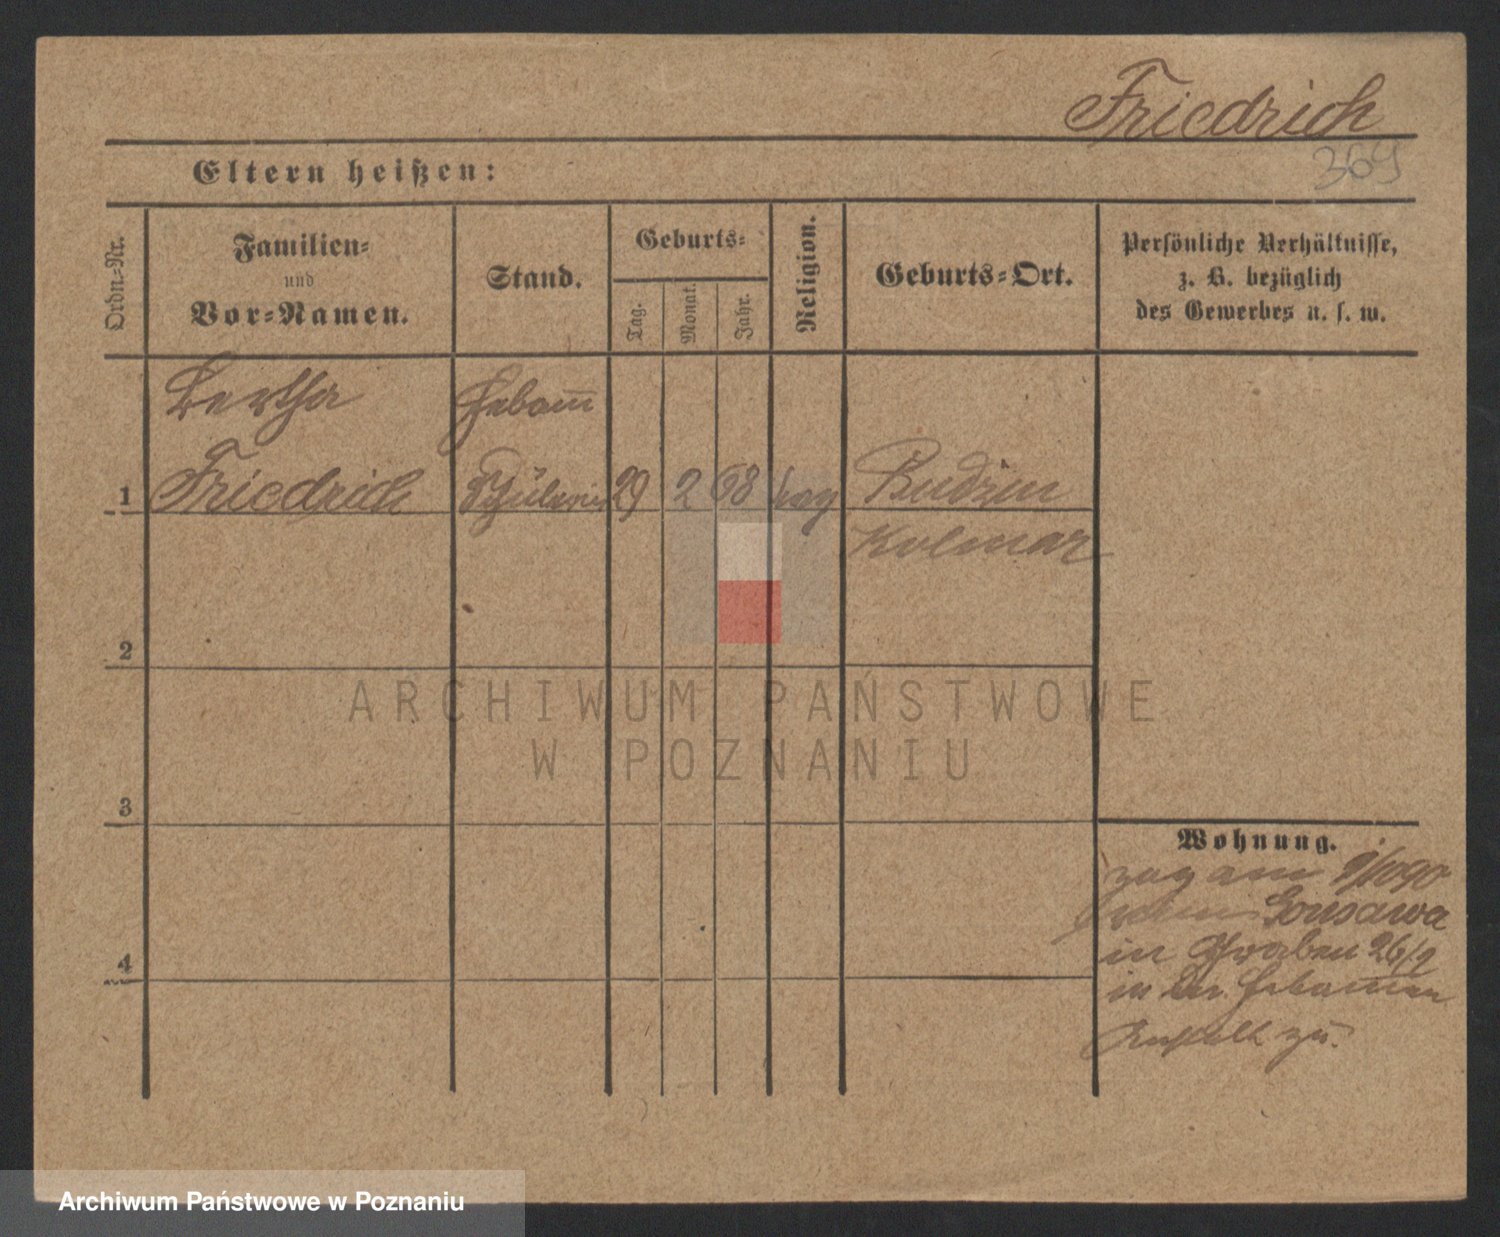 Friedrich
369
Eltern heißen:
Ordn.-Nr.
Familien-
und
Vor-Namen.
Stand.
Geburts-
Tag.
Monat.
Jahr.
Religion.
Geburts-Ort.
Persönliche Verhältnisse,
z. B. bezüglich
des Gewerbes u. s. w.
Bertha
Hebam̅
1 Friedrich Schülerin 29 2 68 Budzin
Kolmar
2
3
4
Wohnung.
zog am 9/10 90
Gonsawa
in Graben 26/2
in der Hebam̅en
Anstalt zu.
ARCHIWUM PAŃSTWOWE
W POZNANIU
Archiwum Państwowe w Poznaniu